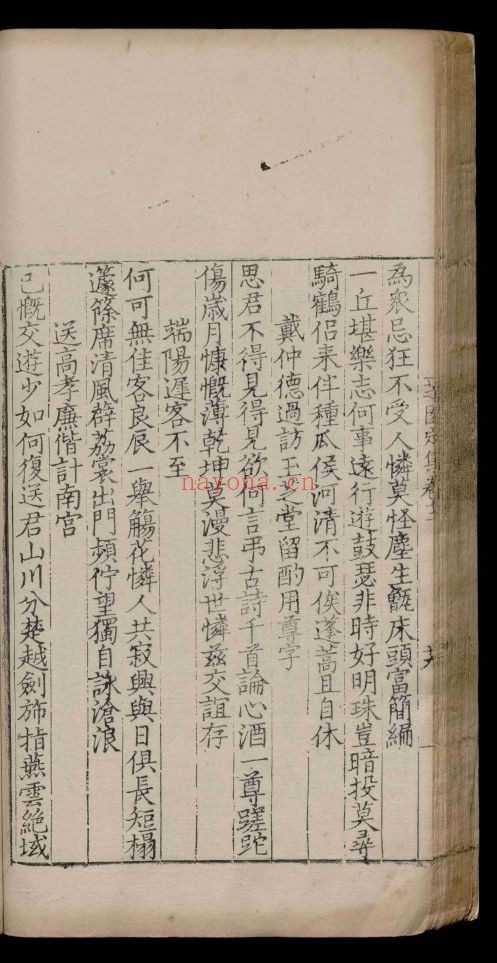 為衆忌狂不受人憐莫怪塵生甑床頭富簡編
一丘堪樂志何事遠行遊鼓瑟非時好明珠豈暗投莫尋
騎鶴侶来伴種瓜侯河清不可俟蓬蒿且自休
戴仲德過訪玉芝堂留酌用尊字
思君不得見得見欲何言弔古詩千首論心酒一尊蹉跎
傷歲月慷慨薄乾坤莫漫悲浮世憐兹交誼存
端陽遲客不至
何可無佳客良辰一舉觴花憐人共寂興與日俱長短榻
籧篨席清風薜荔裳出門頻佇望獨自詠滄浪
送高孝廉偕計南宮
已慨交遊少如何復送君山川分楚越劍斾指燕雲絶域
nayona.cn